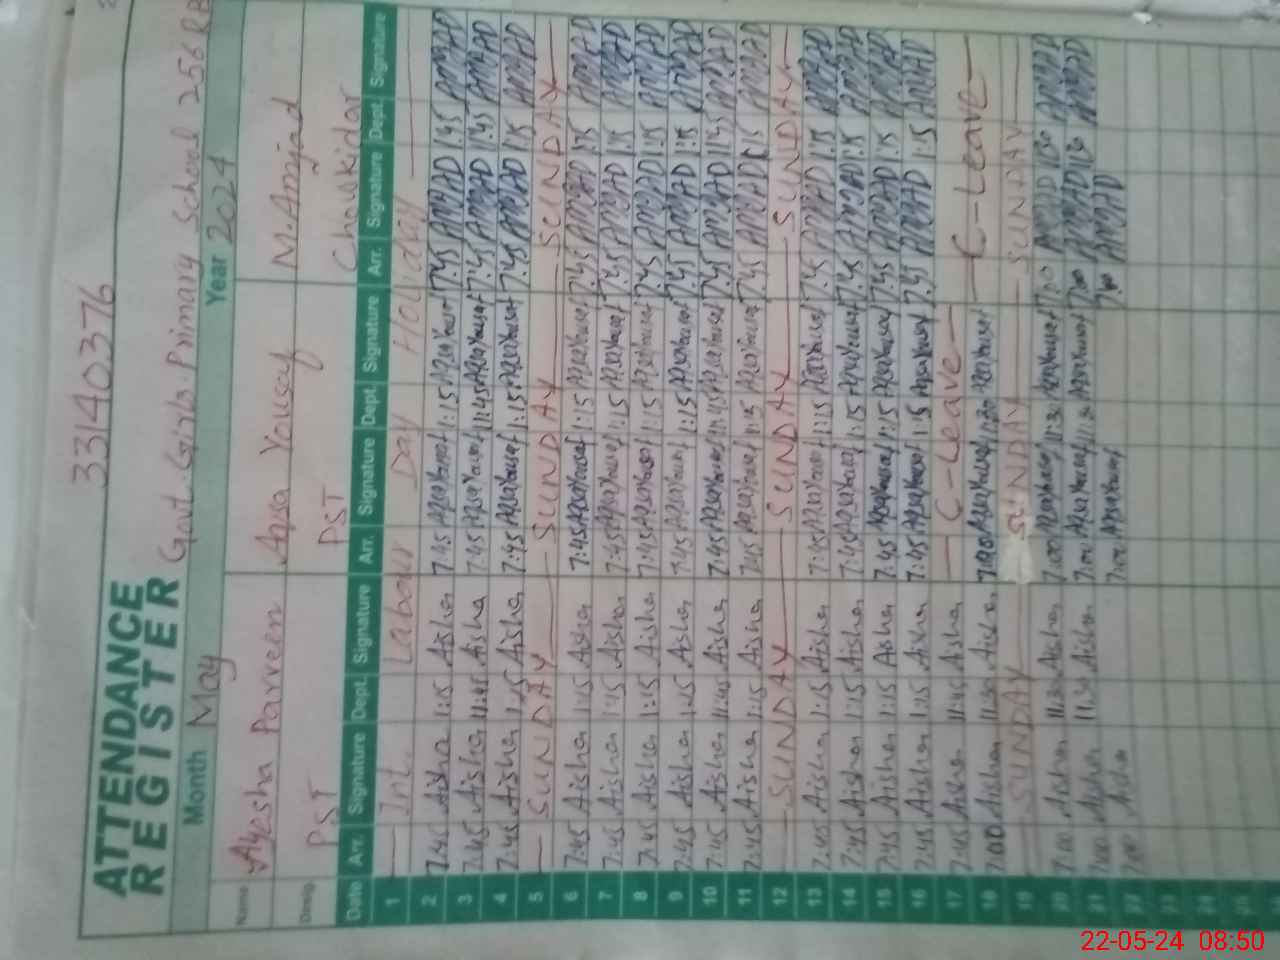 33140376
ATTENDANCE
REGISTER
Govt. Girls Primary School 256 RB
Month May Year 2024
Name Ayesha Parveen Aqsa Yousaf M. Amjad
Desig. PST PST Chowkidar
Date Arr. Signature Dept. Signature Arr. Signature Dept. Signature Arr. Signature Dept. Signature
1 Int. Labour Day Holiday
2 7:45 Aisha 1:15 Aisha 7:45 Aqsa Yousaf 1:15 Aqsa Yousaf 7:45 AMJAD 1:45 AMJAD
3 7:45 Aisha 11:45 Aisha 7:45 Aqsa Yousaf 11:45 Aqsa Yousaf 7:45 AMJAD 11:45 AMJAD
4 7:45 Aisha 1:15 Aisha 7:45 Aqsa Yousaf 1:15 Aqsa Yousaf 7:45 AMJAD 1:15 AMJAD
5 SUNDAY SUNDAY SUNDAY
6 7:45 Aisha 1:15 Aisha 7:45 Aqsa Yousaf 1:15 Aqsa Yousaf 7:45 AMJAD 1:15 AMJAD
7 7:45 Aisha 1:15 Aisha 7:45 Aqsa Yousaf 1:15 Aqsa Yousaf 7:45 AMJAD 1:15 AMJAD
8 7:45 Aisha 1:15 Aisha 7:45 Aqsa Yousaf 1:15 Aqsa Yousaf 7:45 AMJAD 1:15 AMJAD
9 7:45 Aisha 1:15 Aisha 7:45 Aqsa Yousaf 1:15 Aqsa Yousaf 7:45 AMJAD 1:15 AMJAD
10 7:45 Aisha 11:45 Aisha 7:45 Aqsa Yousaf 11:45 Aqsa Yousaf 7:45 AMJAD 11:45 AMJAD
11 7:45 Aisha 1:15 Aisha 7:45 Aqsa Yousaf 1:15 Aqsa Yousaf 7:45 AMJAD 1:15 AMJAD
12 SUNDAY SUNDAY SUNDAY
13 7:45 Aisha 1:15 Aisha 7:45 Aqsa Yousaf 1:15 Aqsa Yousaf 7:45 AMJAD 1:15 AMJAD
14 7:45 Aisha 1:15 Aisha 7:45 Aqsa Yousaf 1:15 Aqsa Yousaf 7:45 AMJAD 1:15 AMJAD
15 7:45 Aisha 1:15 Aisha 7:45 Aqsa Yousaf 1:15 Aqsa Yousaf 7:45 AMJAD 1:15 AMJAD
16 7:45 Aisha 1:15 Aisha 7:45 Aqsa Yousaf 1:15 Aqsa Yousaf 7:45 AMJAD 1:15 AMJAD
17 7:45 Aisha 11:45 Aisha C-Leave
18 7:00 Aisha 11:30 Aisha 7:00 Aqsa Yousaf 11:30 Aqsa Yousaf C-Leave
19 SUNDAY SUNDAY SUNDAY
20 7:00 Aisha 11:30 Aisha 7:00 Aqsa Yousaf 11:30 Aqsa Yousaf 7:00 AMJAD AMJAD
21 7:00 Aisha 11:30 Aisha 7:00 Aqsa Yousaf 11:30 Aqsa Yousaf 7:00 AMJAD AMJAD
22 7:00 Aisha 7:00 Aqsa Yousaf 7:00 AMJAD
23
24
25
22-05-24 08:50